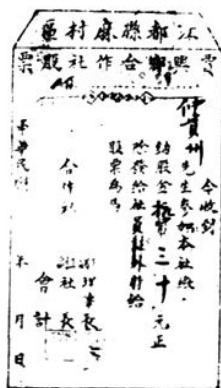 江都縣麻村區
合作社股票
今收到
仲貫州先生參加本社繳
納股金抗幣三十元正
除發給社員證外計給
股票為
合作社
理事長
社長
會計
中華民國 年 月 日